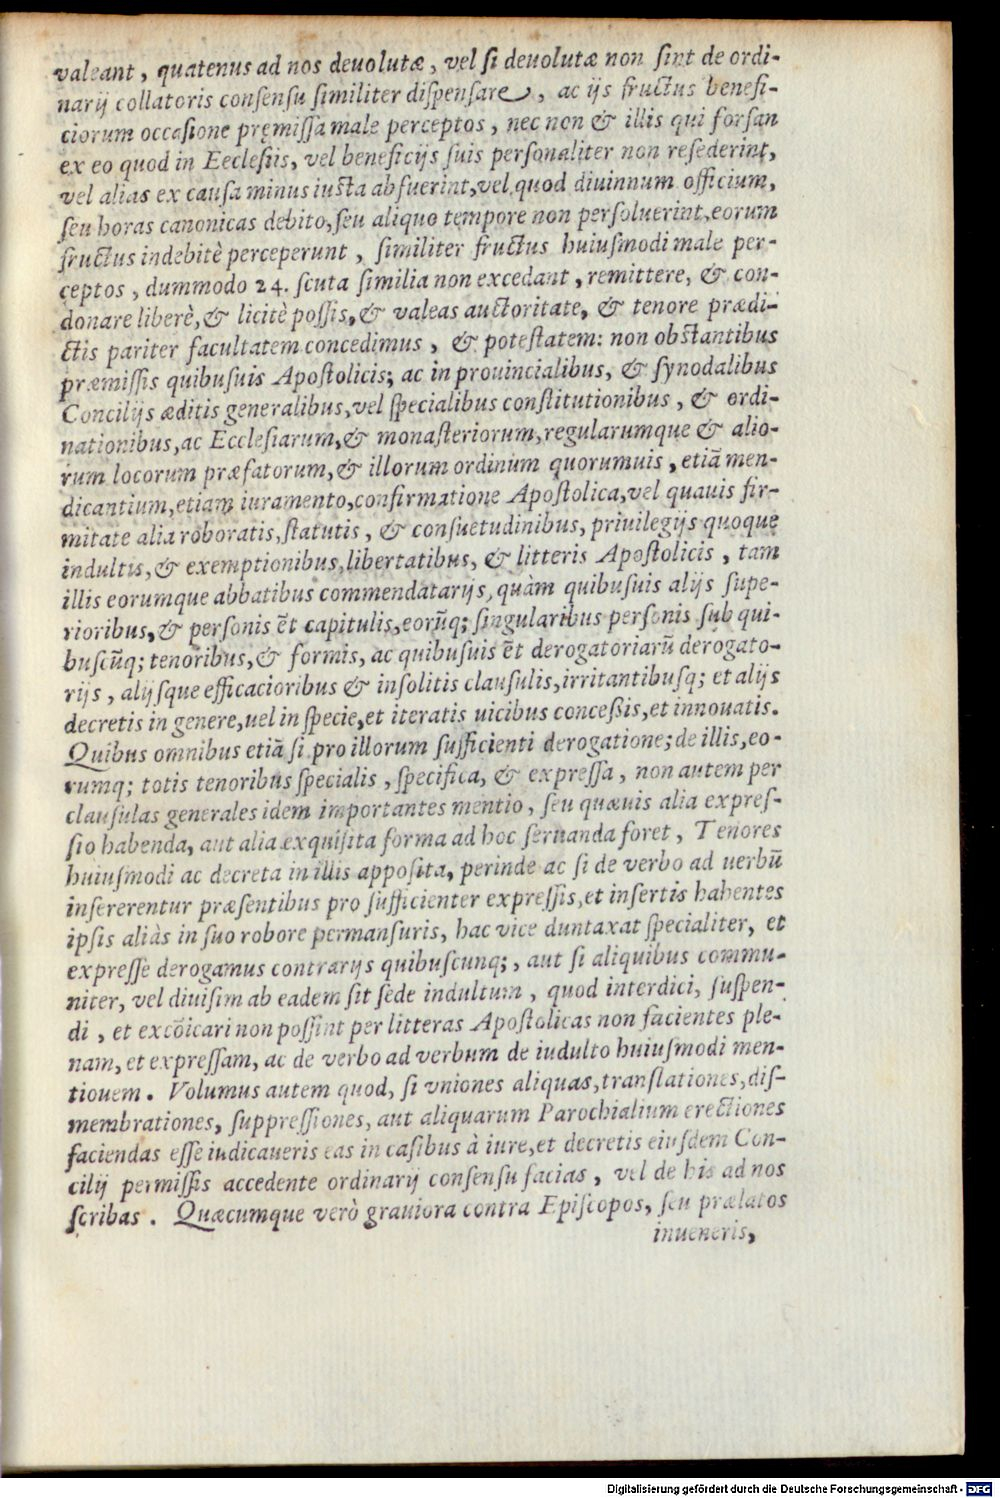 valeant, quatenus ad nos deuolutæ, vel si deuolutæ non sint de ordi-
narij collatoris consensu similiter dispensare, ac ijs fructus benefi-
ciorum occasione pręmissa male perceptos, nec non & illis qui forsan
ex eo quod in Eeclesiis, vel beneficijs suis personaliter non resederint,
vel alias ex causa minus iusta absuerint, vel quod diuinnum officium,
seu horas canonicas debito, seu aliquo tempore non persoluerint, eorum
fructus indebitè perceperunt, similiter fructus huiusmodi male per-
ceptos, dummodo 24. scuta similia non excedant, remittere, & con-
donare liberè, & licitè possis, & valeas auctoritate, & tenore prædi-
ctis pariter facultatem concedimus, & potestatem: non obstantibus
præmissis quibusuis Apostolicis; ac in prouincialibus, & synodalibus
Concilijs æditis generalibus, vel specialibus constitutionibus, & ordi-
nationibus, ac Ecclesiarum, & monasteriorum, regularumque & alio-
rum locorum præfatorum, & illorum ordinum quorumuis, etiā men-
dicantium, etiam iuramento, confirmatione Apostolica, vel quauis fir-
mitate alia roboratis, statutis, & consuetudinibus, priuilegijs quoque
indultis, & exemptionibus, libertatibus, & litteris Apostolicis, tam
illis eorumque abbatibus commendatarijs, quàm quibusuis alijs supe-
rioribus, & personis ēt capitulis, eorūq; singularibus personis sub qui-
buscūq; tenoribus, & formis, ac quibusuis ēt derogatoriarū derogato-
rijs, alijsque efficacioribus & insolitis clausulis, irritantibusq; et alijs
decretis in genere, uel in specie, et iteratis uicibus conceßis, et innouatis.
Quibus omnibus etiā si pro illorum sufficienti derogatione; de illis, eo-
rumq; totis tenoribus specialis, specifica, & expressa, non autem per
clausulas generales idem importantes mentio, seu quæuis alia expres-
sio habenda, aut alia exquisita forma ad hoc seruanda foret, Tenores
huiusmodi ac decreta in illis apposita, perinde ac si de verbo ad uerbū
insererentur præsentibus pro sufficienter expressis, et insertis habentes
ipsis aliàs in suo robore permansuris, hac vice duntaxat specialiter, et
expresse derogamus contrarijs quibuscunq;, aut si aliquibus commu-
niter, vel diuisim ab eadem sit sede indultum, quod interdici, suspen-
di, et excōicari non possint per litteras Apostolicas non facientes ple-
nam, et expressam, ac de verbo ad verbum de iudulto huiusmodi men-
tiouem. Volumus autem quod, si vniones aliquas, translationes, dis-
membrationes, suppressiones, aut aliquarum Parochialium erectiones
faciendas esse iudicaueris eas in casibus à iure, et decretis eiusdem Con-
cilij permissis accedente ordinarij consensu facias, vel de his ad nos
scribas. Quæcumque verò grauiora contra Episcopos, seu prælatos
inueneris,
Digitalisierung gefördert durch die Deutsche Forschungsgemeinschaft - DFG